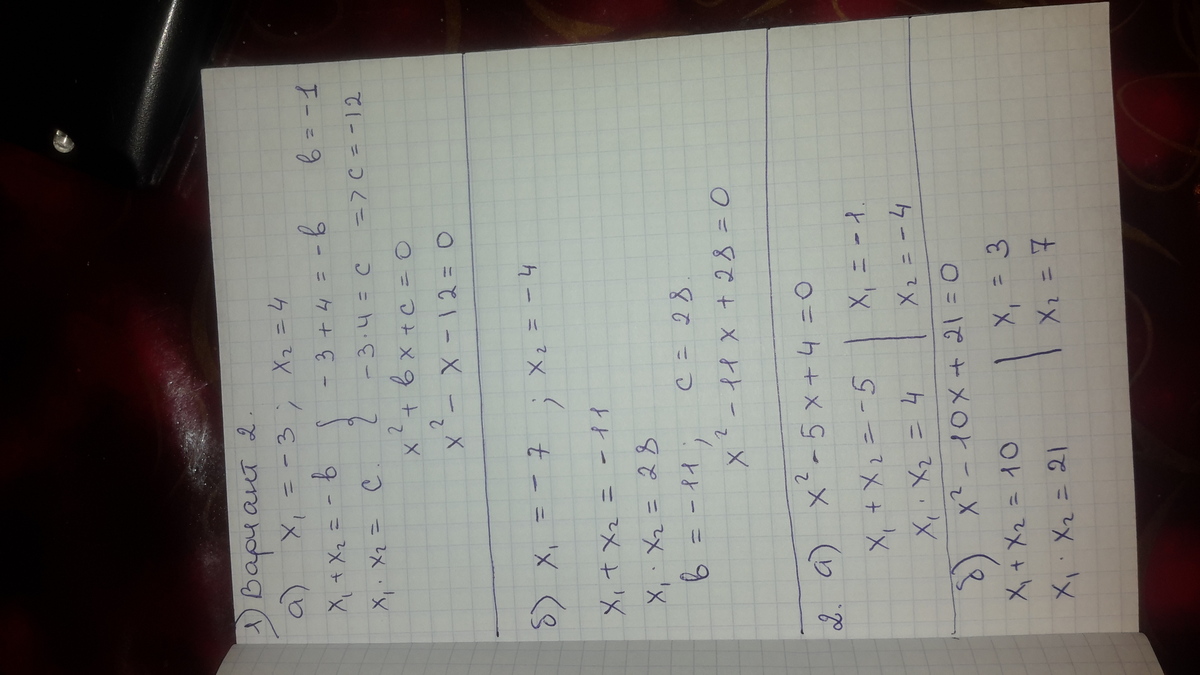 1) Вариант 2.
а) x₁ = -3; x₂ = 4
x₁ + x₂ = -в } -3 + 4 = -в в = -1
x₁ · x₂ = с. } -3·4 = с => с = -12
x² + вx + с = 0
x² - x - 12 = 0
б) x₁ = -7 ; x₂ = -4
x₁ + x₂ = -11
x₁ · x₂ = 28
в = -11; с = 28.
x² - 11x + 28 = 0
2. а) x² - 5x + 4 = 0
x₁ + x₂ = -5 | x₁ = -1.
x₁ · x₂ = 4 | x₂ = -4
б) x² - 10x + 21 = 0
x₁ + x₂ = 10 | x₁ = 3
x₁ · x₂ = 21 | x₂ = 7